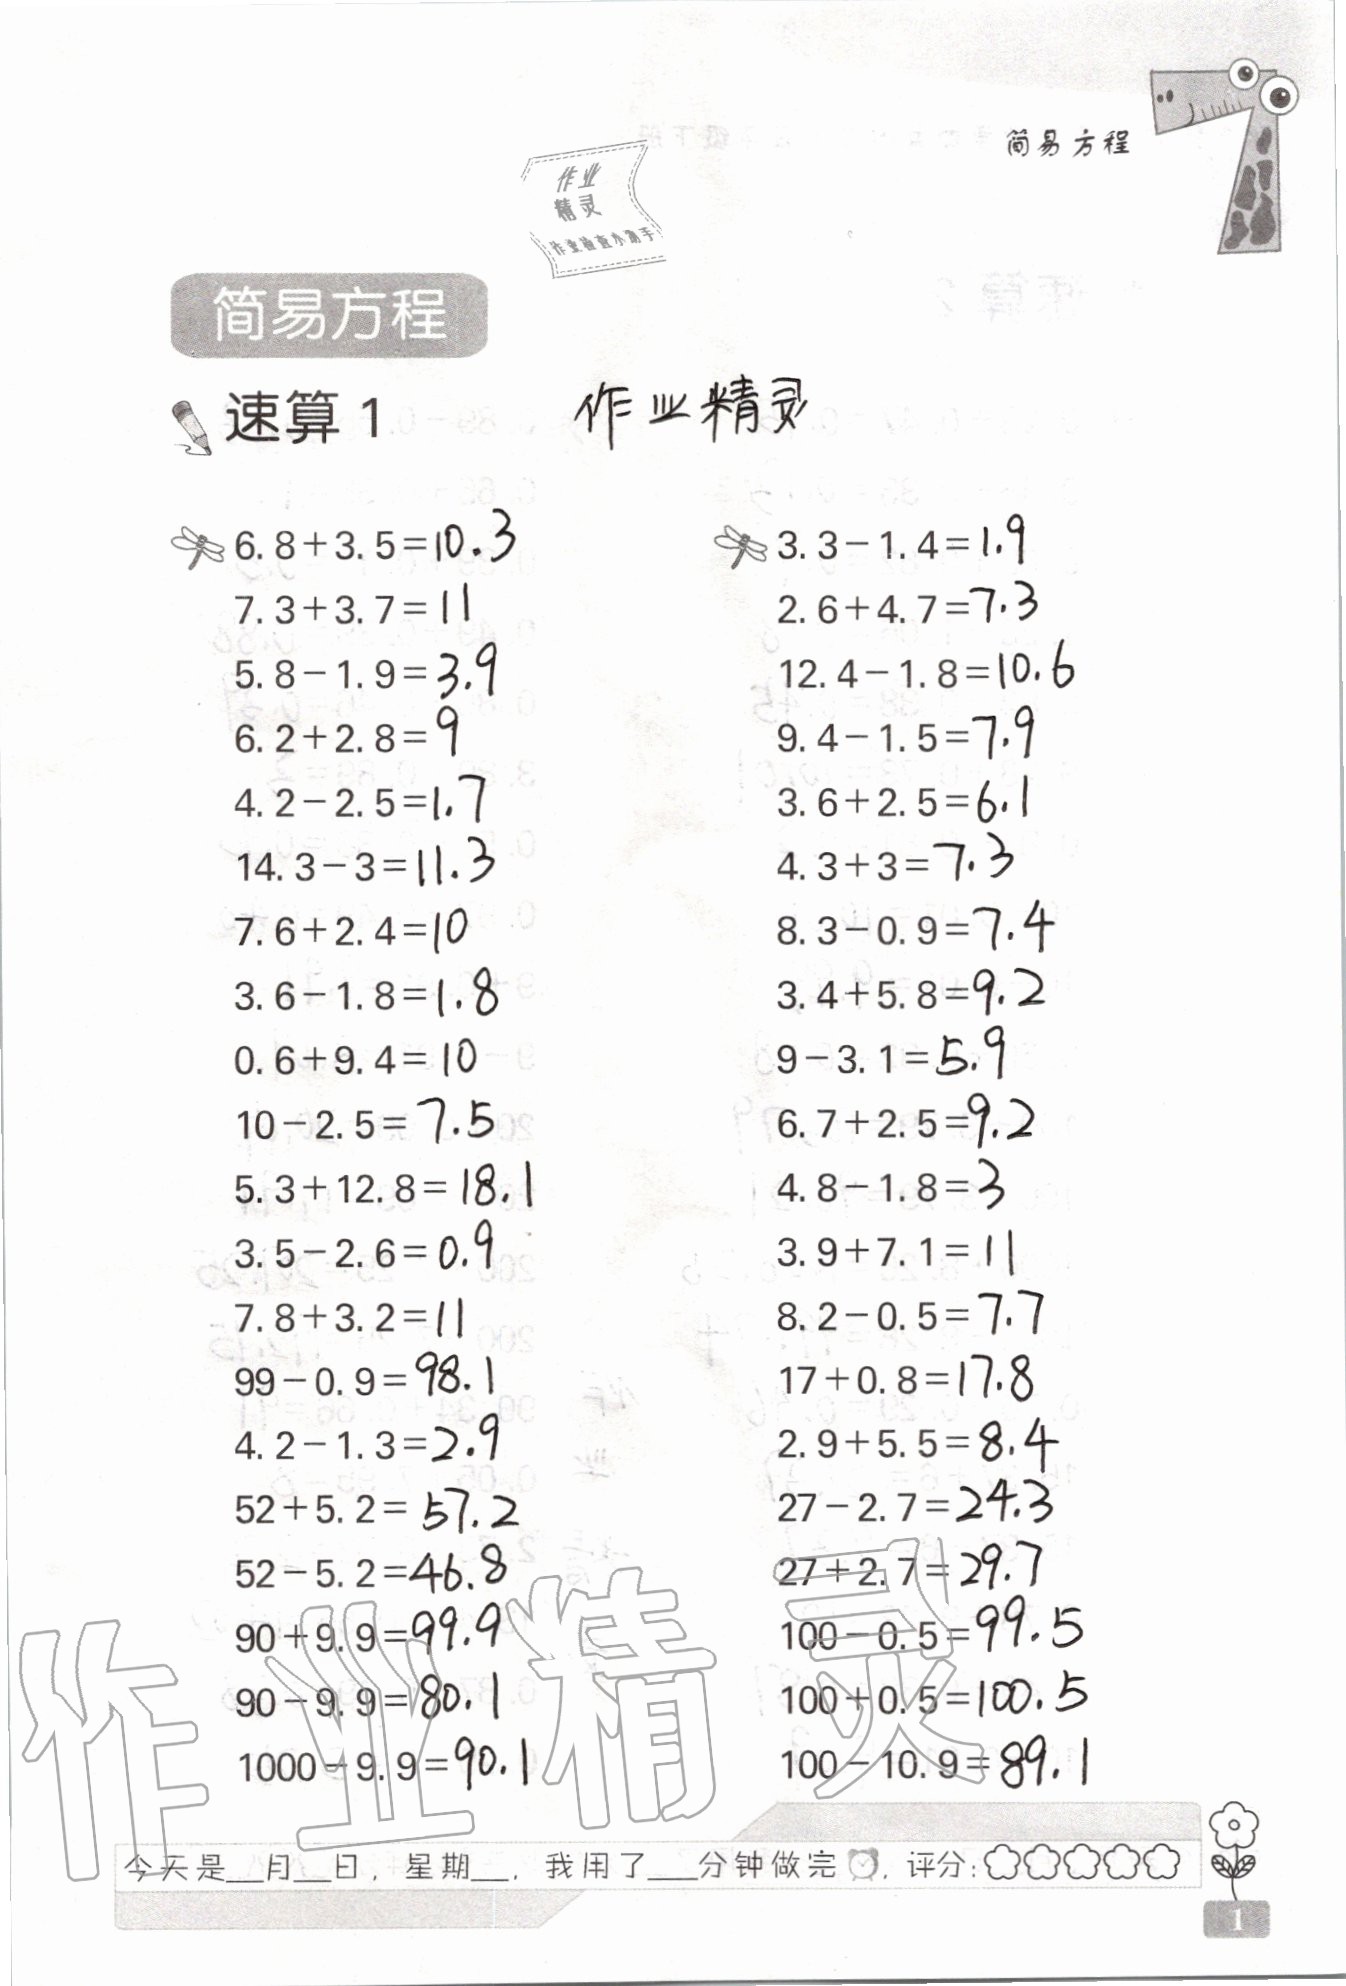 简易方程
作业
精灵
作业检查小助手
简易方程
速算 1
作业精灵
6.8+3.5=10.3
7.3+3.7=11
5.8-1.9=3.9
6.2+2.8=9
4.2-2.5=1.7
14.3-3=11.3
7.6+2.4=10
3.6-1.8=1.8
0.6+9.4=10
10-2.5=7.5
5.3+12.8=18.1
3.5-2.6=0.9
7.8+3.2=11
99-0.9=98.1
4.2-1.3=2.9
52+5.2=57.2
52-5.2=46.8
90+9.9=99.9
90-9.9=80.1
1000-9.9=90.1
3.3-1.4=1.9
2.6+4.7=7.3
12.4-1.8=10.6
9.4-1.5=7.9
3.6+2.5=6.1
4.3+3=7.3
8.3-0.9=7.4
3.4+5.8=9.2
9-3.1=5.9
6.7+2.5=9.2
4.8-1.8=3
3.9+7.1=11
8.2-0.5=7.7
17+0.8=17.8
2.9+5.5=8.4
27-2.7=24.3
27+2.7=29.7
100-0.5=99.5
100+0.5=100.5
100-10.9=89.1
作业精灵
今天是__月__日，星期__，我用了__分钟做完，评分：
1